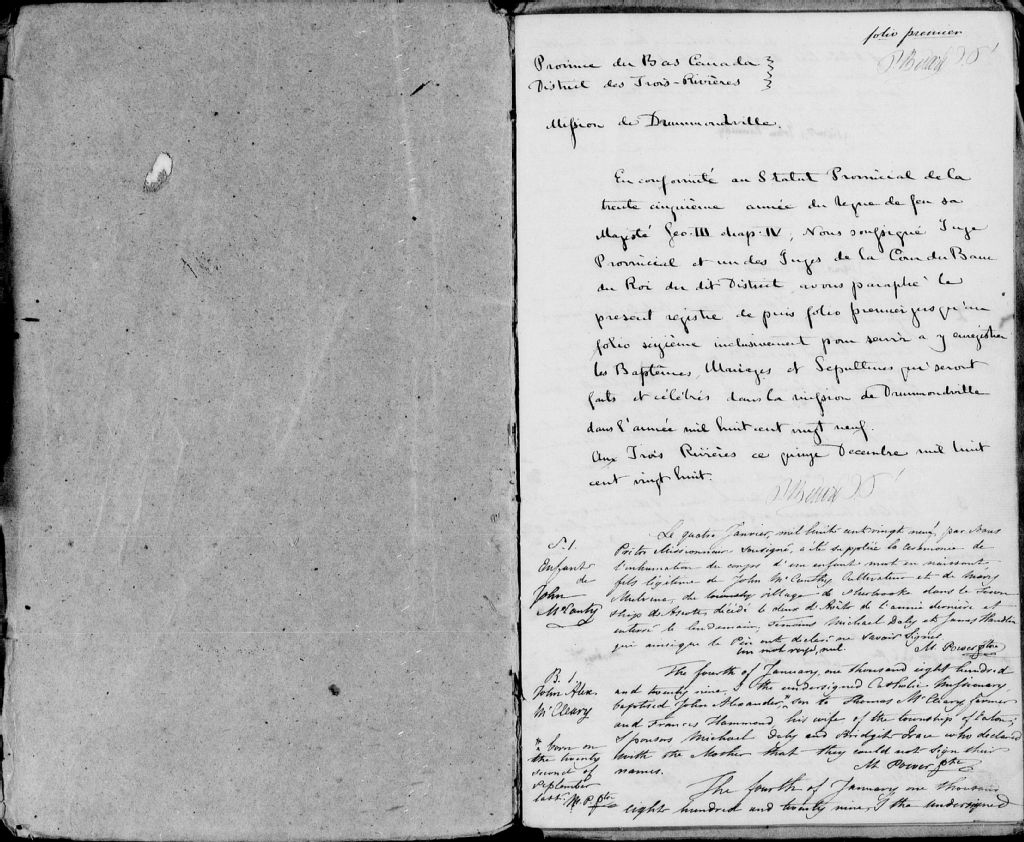 folio premier
Province du Bas Canada
District des Trois-Rivières
Mission de Drummondville
En conformité au Statut Provincial de la
trente cinquième année du regne de feu sa
Majesté Geo. III chap. IV, Nous soussigné Juge
Provincial et un des Juges de la Cour du Banc
du Roi du dit District avons paraphé le
present registre depuis folio premier jusqu'au
folio sixième inclusivement pour servir a y enregistrer
les Baptêmes, Mariages et Sepultures qui seront
faits et célébrés dans la mission de Drummondville
dans l'année mil huit cent vingt neuf.
Aux Trois Rivières ce quinze Decembre mil huit
cent vingt huit.
S. 1.
Enfant
de
John
McCarty
Le quatre Janvier, mil huit cent vingt neuf, par Nous
Prêtre Missionnaire soussigné, a été suppléé la cérémonie de
l'inhumation du corps d'un enfant mort en naissant,
fils légitime de John McCarthy Cultivateur et de Mary
village de Sherbrooke dans le Town
ship de Ascot, décédé le deux d' de l'année dernière et
enterré le lendemain, Témoins Michael Daly et James
qui ainsi que le Père ont declaré ne savoir signer
un mot rayé, nul. M Power ptre
B. 1.
John Alex.
McCleary
The fourth of January, one thousand eight hundred
and twenty nine, I the undersigned Catholic Missionary,
baptised John Alexander, son to Thomas McCleary, farmer
and Frances Hammond, his wife of the township of Eaton;
Sponsors Michael Daly and Bridgit Grace who declared
with the Mother that they could not sign their
names. M Power ptre
born on
the twenty
second of
September
last. M. P ptre
The fourth of January one thousand
eight hundred and twenty nine, I the undersigned